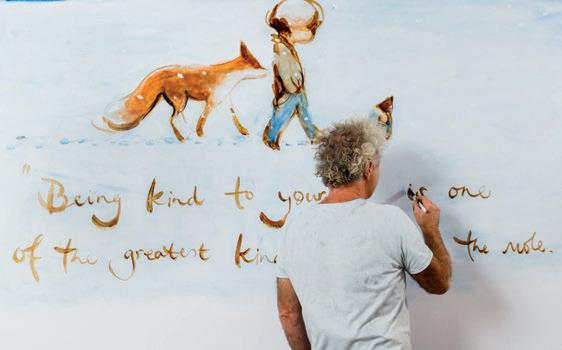 "Being kind to your is one
of the greatest kin the mole.